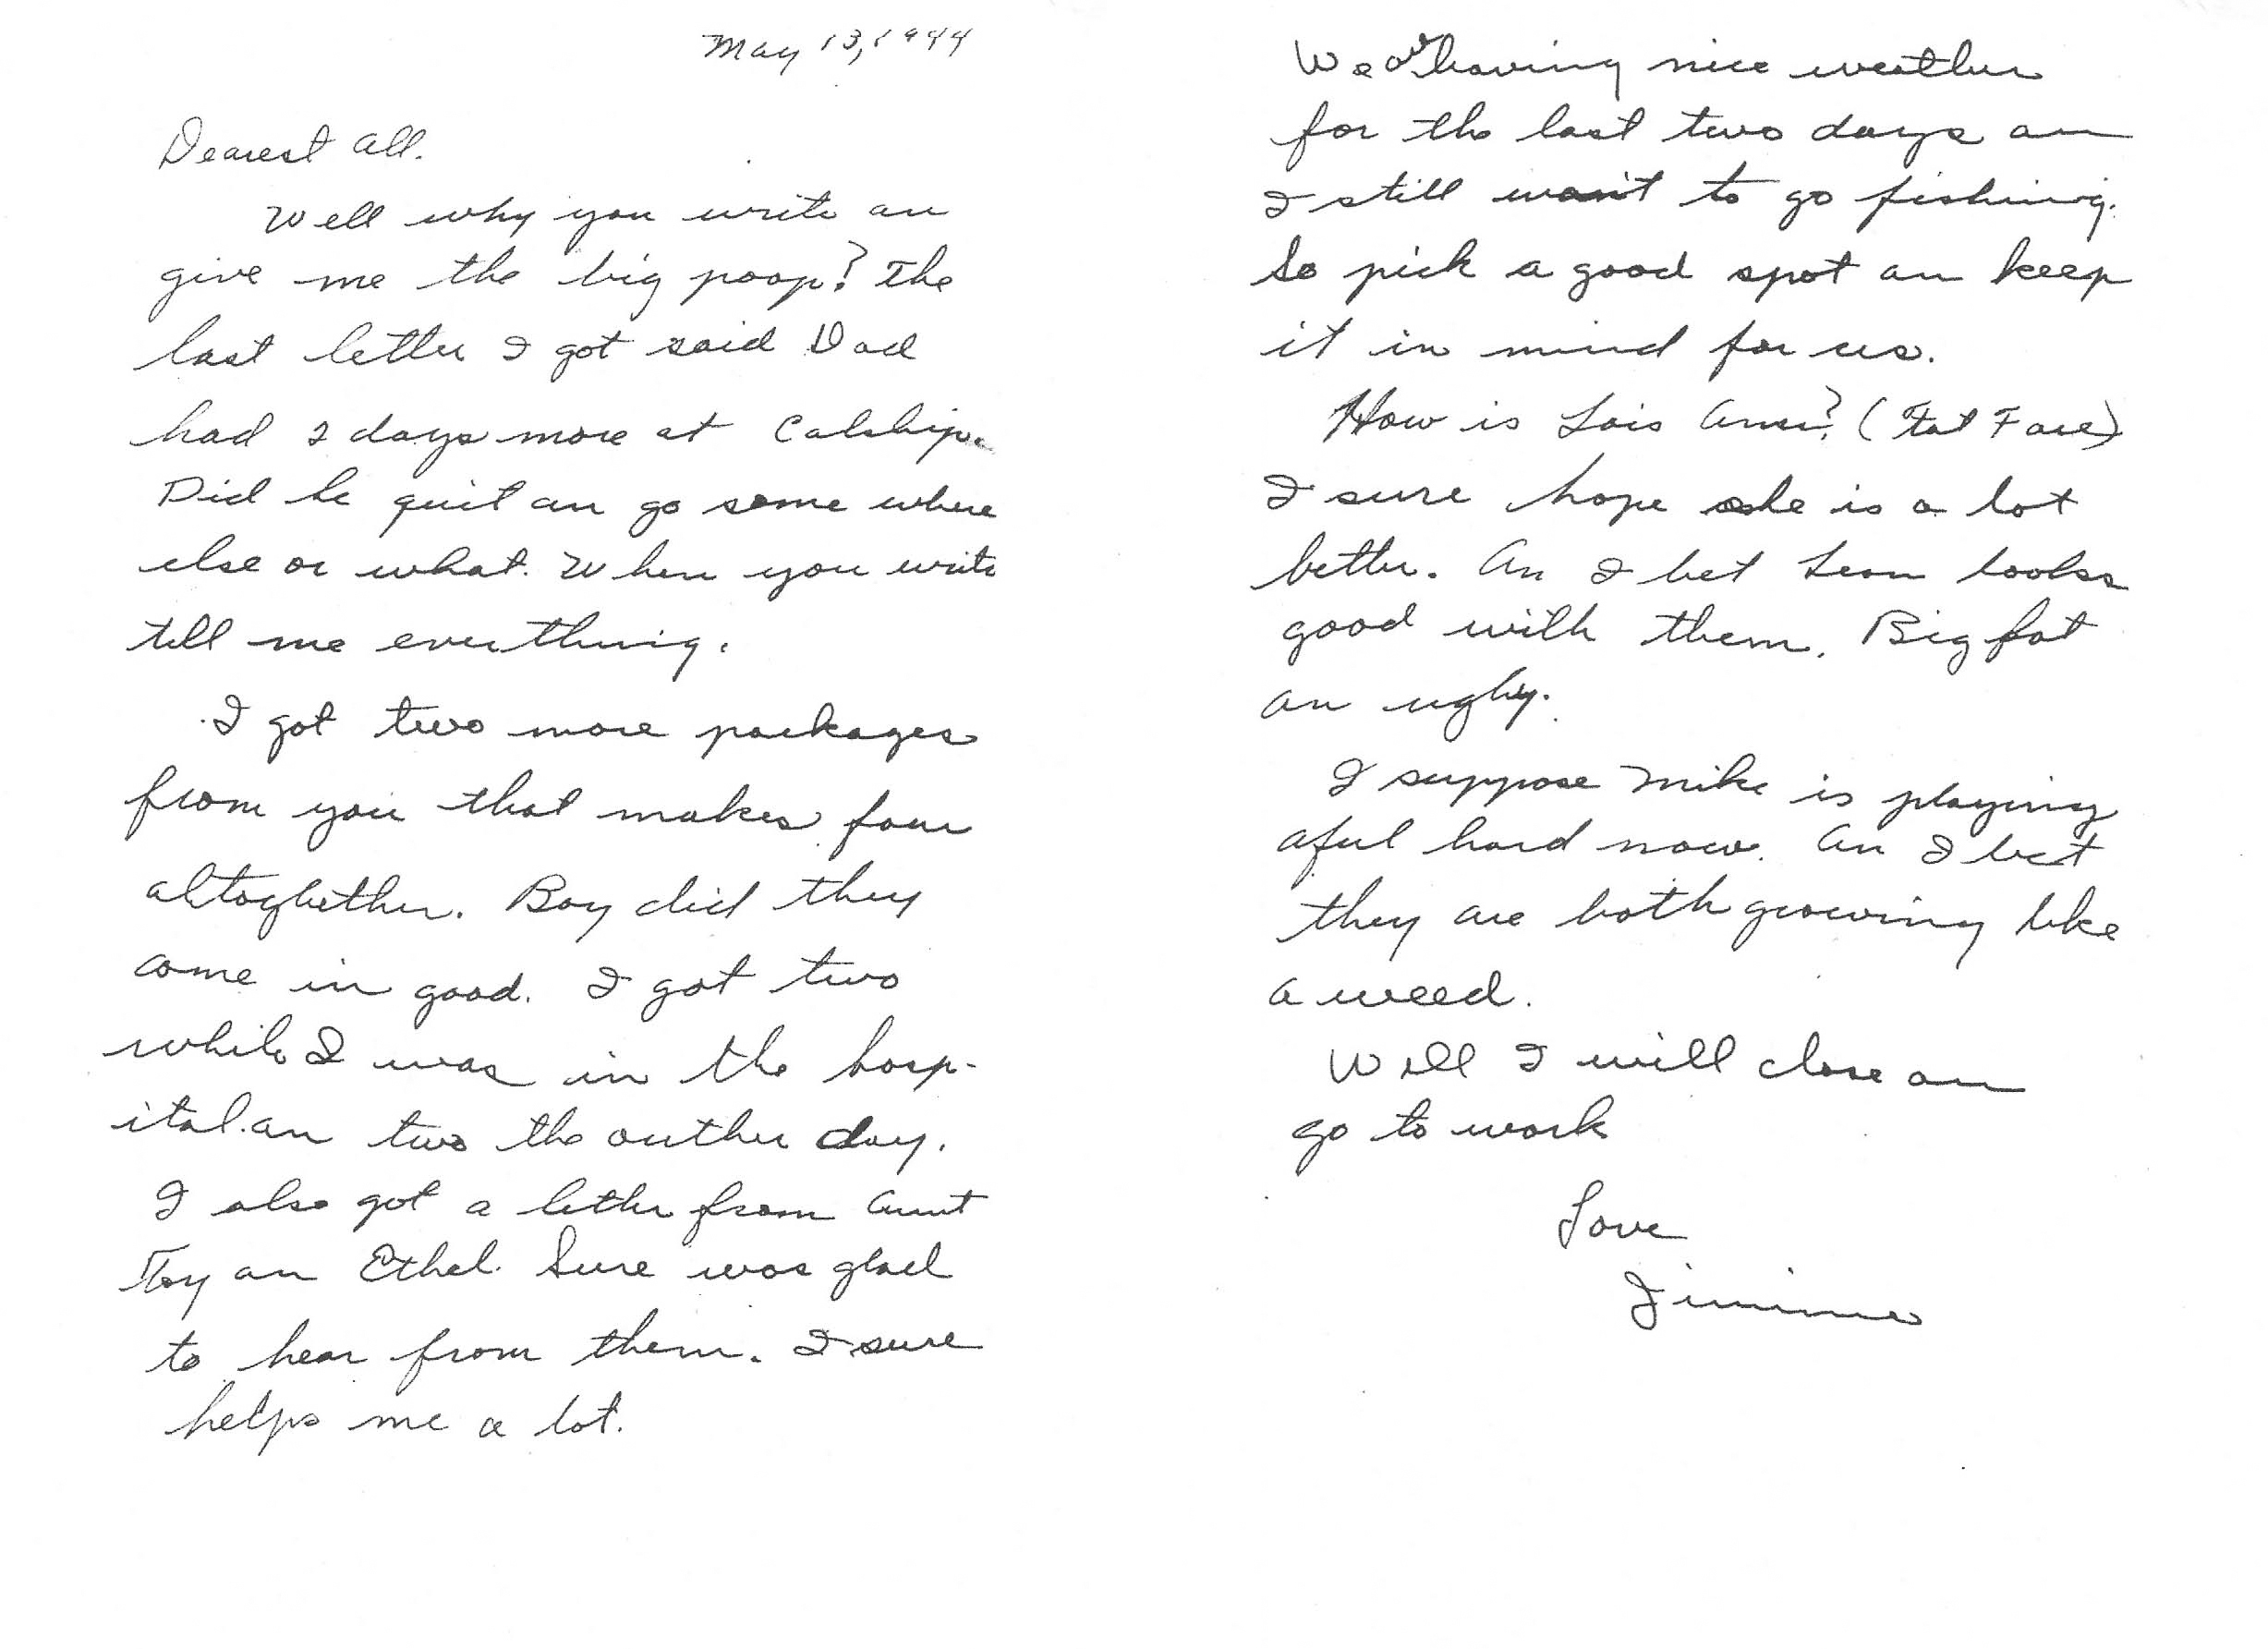 May 13, 1944
Dearest all.
Well why you write an
give me the big poop? The
last letter I got said Dad
had 2 days more at Calship.
Did he quit an go some where
else or what. When you write
tell me everthing.
I got two more packages
from you that makes four
altoghether. Boy did they
come in good. I got two
while I was in the hosp-
ital. an two the outher day.
I also got a letter from Aunt
Toy an Ethel. Sure was glad
to hear from them. I sure
helps me a lot.
We are having nice weather
for the last two days an
I still want to go fishing.
So pick a good spot an keep
it in mind for us.
How is Lois Ann? (Fat Face)
I sure hope she is a lot
better. An I bet Leon looks
good with them. Big fat
an ugly.
I suppose Mike is playing
aful hard now. An I bet
they are both growing like
a weed.
Well I will close an
go to work
Love
Jimmie